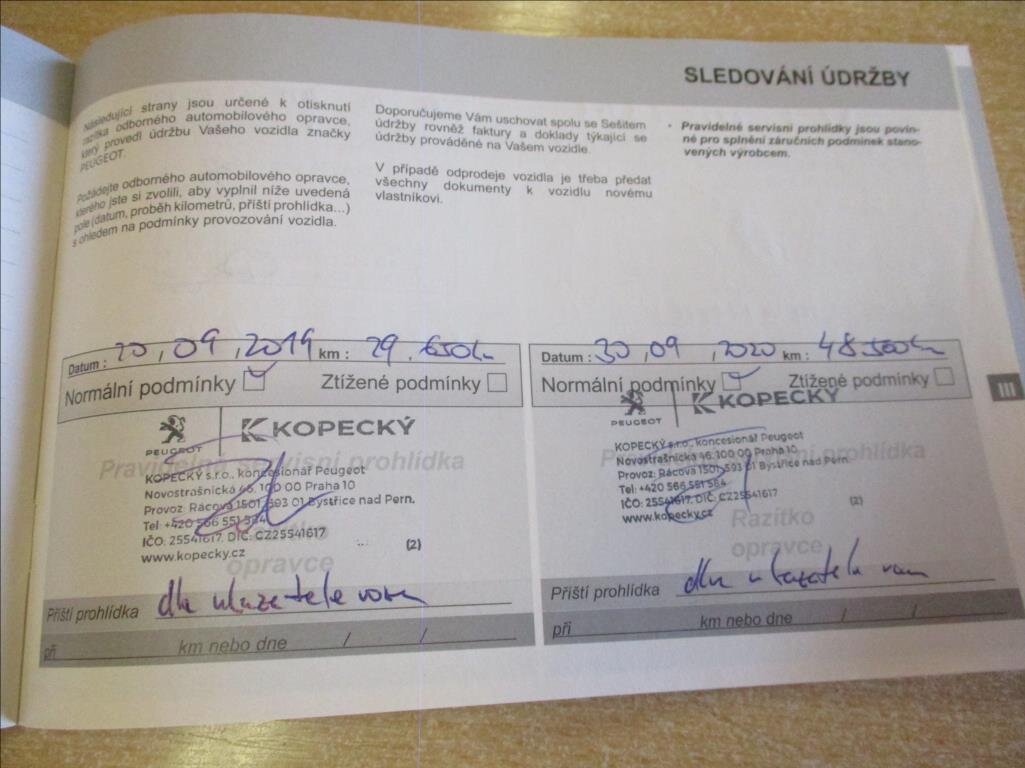 SLEDOVÁNÍ ÚDRŽBY
Následující strany jsou určené k otisknutí
razítka odborného automobilového opravce,
který provedl údržbu Vašeho vozidla značky
PEUGEOT.
Požádejte odborného automobilového opravce,
kterého jste si zvolili, aby vyplnil níže uvedená
pole (datum, proběh kilometrů, příští prohlídka...)
s ohledem na podmínky provozování vozidla.
Doporučujeme Vám uschovat spolu se Sešitem
údržby rovněž faktury a doklady týkající se
údržby prováděné na Vašem vozidle.
V případě odprodeje vozidla je třeba předat
všechny dokumenty k vozidlu novému
vlastníkovi.
• Pravidelné servisní prohlídky jsou povin-
né pro splnění záručních podmínek stano-
vených výrobcem.
Datum : 20, 09, 2019 km : 29.650km
Normální podmínky Ztížené podmínky
PEUGEOT KOPECKÝ
Pravidelná servisní prohlídka
KOPECKÝ s.r.o., koncesionář Peugeot
Novostrašnická 46, 100 00 Praha 10
Provoz: Rácova 1501, 593 01 Bystřice nad Pern.
Tel: +420 566 551 584
IČO: 25541617, DIČ: CZ25541617
www.kopecky.cz
(2)
opravce
Příští prohlídka dle ukazatele vozu
při km nebo dne / /
Datum : 30, 09, 2020 km : 48.500km
Normální podmínky Ztížené podmínky
PEUGEOT KOPECKÝ
KOPECKÝ s.r.o., koncesionář Peugeot
Novostrašnická 46, 100 00 Praha 10
Provoz: Rácova 1501, 593 01 Bystřice nad Pern.
Tel: +420 566 551 584
IČO: 25541617, DIČ: CZ25541617
www.kopecky.cz
(2)
Razítko
opravce
Příští prohlídka dle ukazatele vozu
při km nebo dne / /
III